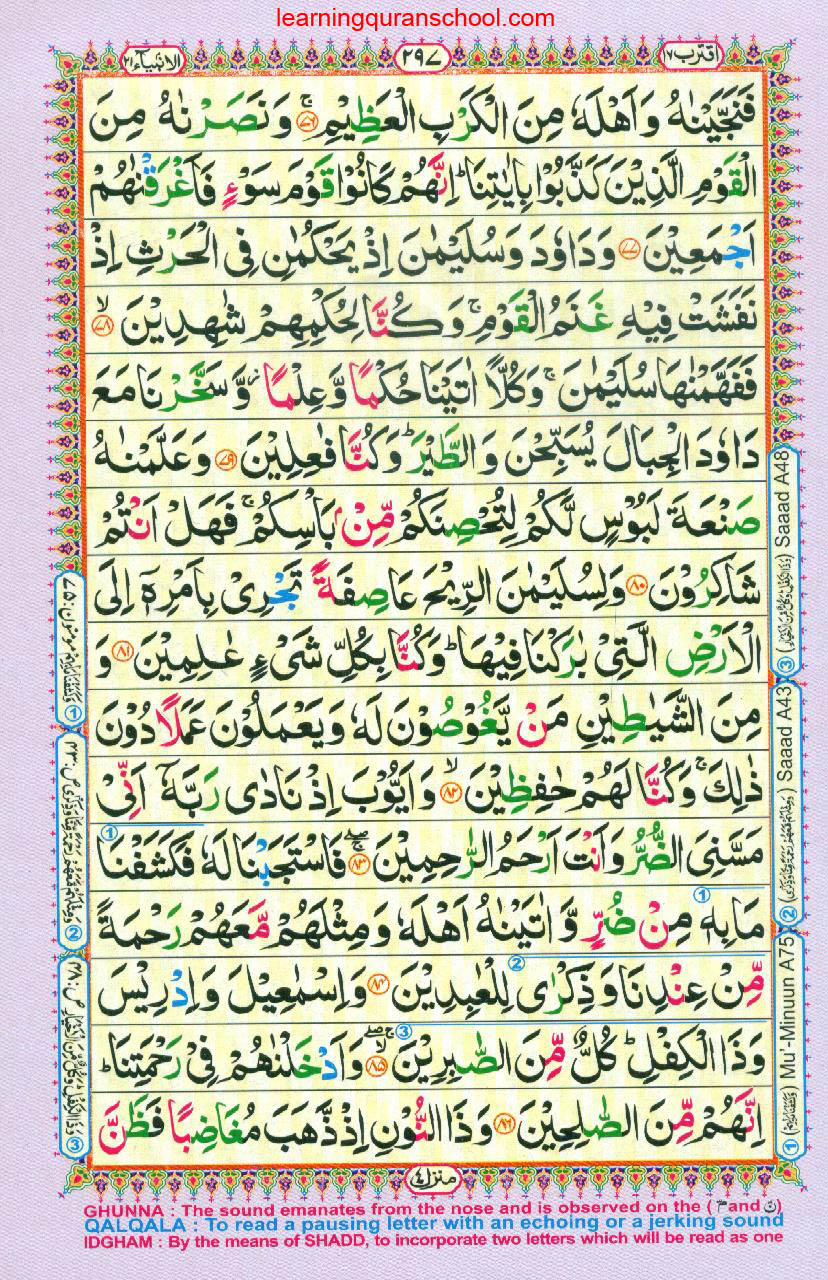 learningquranschool.com
اقترب ١٧
٢٩٧
الانبیآء ٢١
فَنَجَّیْنٰهُ وَ اَهْلَهٗ مِنَ الْكَرْبِ الْعَظِیْمِ ۚ ﴿٧٦﴾ وَ نَصَرْنٰهُ مِنَ
الْقَوْمِ الَّذِیْنَ كَذَّبُوْا بِاٰیٰتِنَا ؕ اِنَّهُمْ كَانُوْا قَوْمَ سَوْءٍ فَاَغْرَقْنٰهُمْ
اَجْمَعِیْنَ ﴿٧٧﴾ وَ دَاوٗدَ وَ سُلَیْمٰنَ اِذْ یَحْكُمٰنِ فِی الْحَرْثِ اِذْ
نَفَشَتْ فِیْهِ غَنَمُ الْقَوْمِ ۚ وَ كُنَّا لِحُكْمِهِمْ شٰهِدِیْنَ ۙ ﴿٧٨﴾
فَفَهَّمْنٰهَا سُلَیْمٰنَ ۚ وَ كُلًّا اٰتَیْنَا حُكْمًا وَّ عِلْمًا ؗ وَّ سَخَّرْنَا مَعَ
دَاوٗدَ الْجِبَالَ یُسَبِّحْنَ وَ الطَّیْرَ ؕ وَ كُنَّا فٰعِلِیْنَ ﴿٧٩﴾ وَ عَلَّمْنٰهُ
صَنْعَةَ لَبُوْسٍ لَّكُمْ لِتُحْصِنَكُمْ مِّنْۢ بَاْسِكُمْ ۚ فَهَلْ اَنْتُمْ
شَاكِرُوْنَ ﴿٨٠﴾ وَ لِسُلَیْمٰنَ الرِّیْحَ عَاصِفَةً تَجْرِیْ بِاَمْرِهٖۤ اِلَی
الْاَرْضِ الَّتِیْ بٰرَكْنَا فِیْهَا ؕ وَ كُنَّا بِكُلِّ شَیْءٍ عٰلِمِیْنَ ﴿٨١﴾ وَ
مِنَ الشَّیٰطِیْنِ مَنْ یَّغُوْصُوْنَ لَهٗ وَ یَعْمَلُوْنَ عَمَلًا دُوْنَ
ذٰلِكَ ۚ وَ كُنَّا لَهُمْ حٰفِظِیْنَ ۙ ﴿٨٢﴾ وَ اَیُّوْبَ اِذْ نَادٰی رَبَّهٗۤ اَنِّیْ
مَسَّنِیَ الضُّرُّ وَ اَنْتَ اَرْحَمُ الرّٰحِمِیْنَ ۚۖ ﴿٨٣﴾ فَاسْتَجَبْنَا لَهٗ فَكَشَفْنَا
مَا بِهٖ مِنْ ضُرٍّ وَّ اٰتَیْنٰهُ اَهْلَهٗ وَ مِثْلَهُمْ مَّعَهُمْ رَحْمَةً
مِّنْ عِنْدِنَا وَ ذِكْرٰی لِلْعٰبِدِیْنَ ﴿٨٤﴾ وَ اِسْمٰعِیْلَ وَ اِدْرِیْسَ
وَ ذَا الْكِفْلِ ؕ كُلٌّ مِّنَ الصّٰبِرِیْنَ ۚۖ ﴿٨٥﴾ وَ اَدْخَلْنٰهُمْ فِیْ رَحْمَتِنَا ؕ
اِنَّهُمْ مِّنَ الصّٰلِحِیْنَ ﴿٨٦﴾ وَ ذَا النُّوْنِ اِذْ ذَّهَبَ مُغَاضِبًا فَظَنَّ
③ Saaad A48
② Saaad A43
① Mu'-Minuun A75
منزل ٤
GHUNNA : The sound emanates from the nose and is observed on the ( مّ and نّ )
QALQALA : To read a pausing letter with an echoing or a jerking sound
IDGHAM : By the means of SHADD, to incorporate two letters which will be read as one